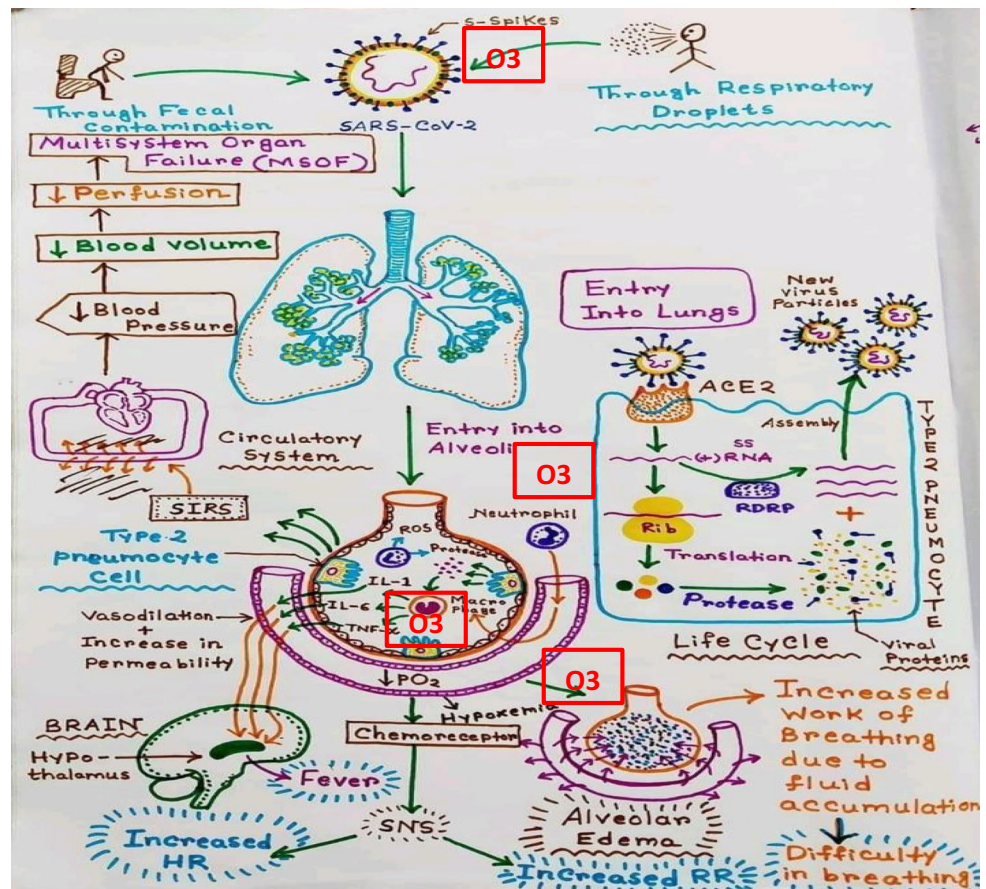 S-Spikes
O3
Through Fecal
Contamination
SARS-CoV-2
Through Respiratory
Droplets
Multisystem Organ
Failure (MSOF)
↓ Perfusion
↓ Blood volume
↓ Blood
Pressure
Circulatory
System
SIRS
Entry
Into Lungs
New
Virus
Particles
ACE2
Assembly
SS
(+)RNA
RDRP
Rib
Translation
Protease
+
Viral
Proteins
Life Cycle
TYPE 2 PNEUMOCYTE
Entry into
Alveoli
O3
Neutrophil
Type-2
Pneumocyte
Cell
ROS
Protease
IL-1
IL-6
TNF-
Macro
phage
O3
Vasodilation
+
Increase in
Permeability
↓PO2
O3
Hypoxemia
Chemoreceptor
BRAIN
Hypo-
thalamus
Fever
SNS
Increased
HR
Increased RR
Alveolar
Edema
Increased
Work of
Breathing
due to
fluid
accumulation
Difficulty
in breathing